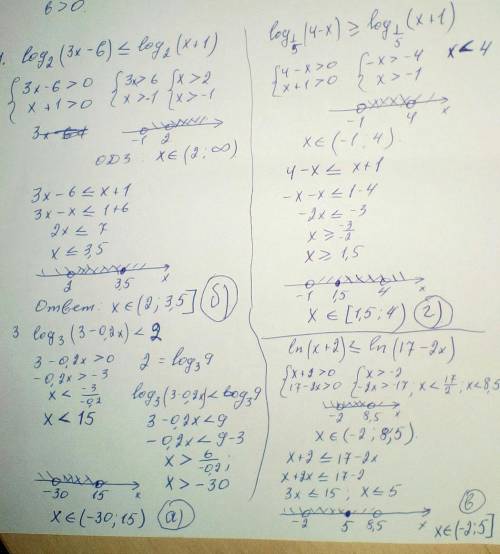 б > 0
1. log₂(3x-6) ≤ log₂(x+1)
{3x-6>0 {3x>6 {x>2
{x+1>0 {x>-1 {x>-1
-1 2 x
ОДЗ: x∈(2;∞)
3x-6 ≤ x+1
3x-x ≤ 1+6
2x ≤ 7
x ≤ 3,5
2 3,5 x
Ответ: x∈(2; 3,5] б)
3 log₃(3-0,2x) < 2
3-0,2x>0 2 = log₃9
-0,2x>-3
x < -3/-0,2 log₃(3-0,2x)<log₃9
x < 15 3-0,2x<9
-0,2x<9-3
x > 6/-0,2;
x > -30
-30 15 x
x∈(-30;15) а)
log_{1/5}(4-x) ≥ log_{1/5}(x+1)
{4-x>0 {-x>-4 x<4
{x+1>0 {x>-1
-1 4 x
x∈(-1;4).
4-x ≤ x+1
-x-x ≤ 1-4
-2x ≤ -3
x ≥ -3/-2
x ≥ 1,5
-1 1,5 4 x
x∈[1,5;4) г)
ln(x+2) ≤ ln(17-2x)
{x+2>0 {x>-2
{17-2x>0 {-2x>-17, x<17/2, x<8,5
-2 8,5 x
x∈(-2;8,5).
x+2 ≤ 17-2x
x+2x ≤ 17-2
3x ≤ 15; x ≤ 5
-2 5 8,5 x
в)
x∈(-2;5]